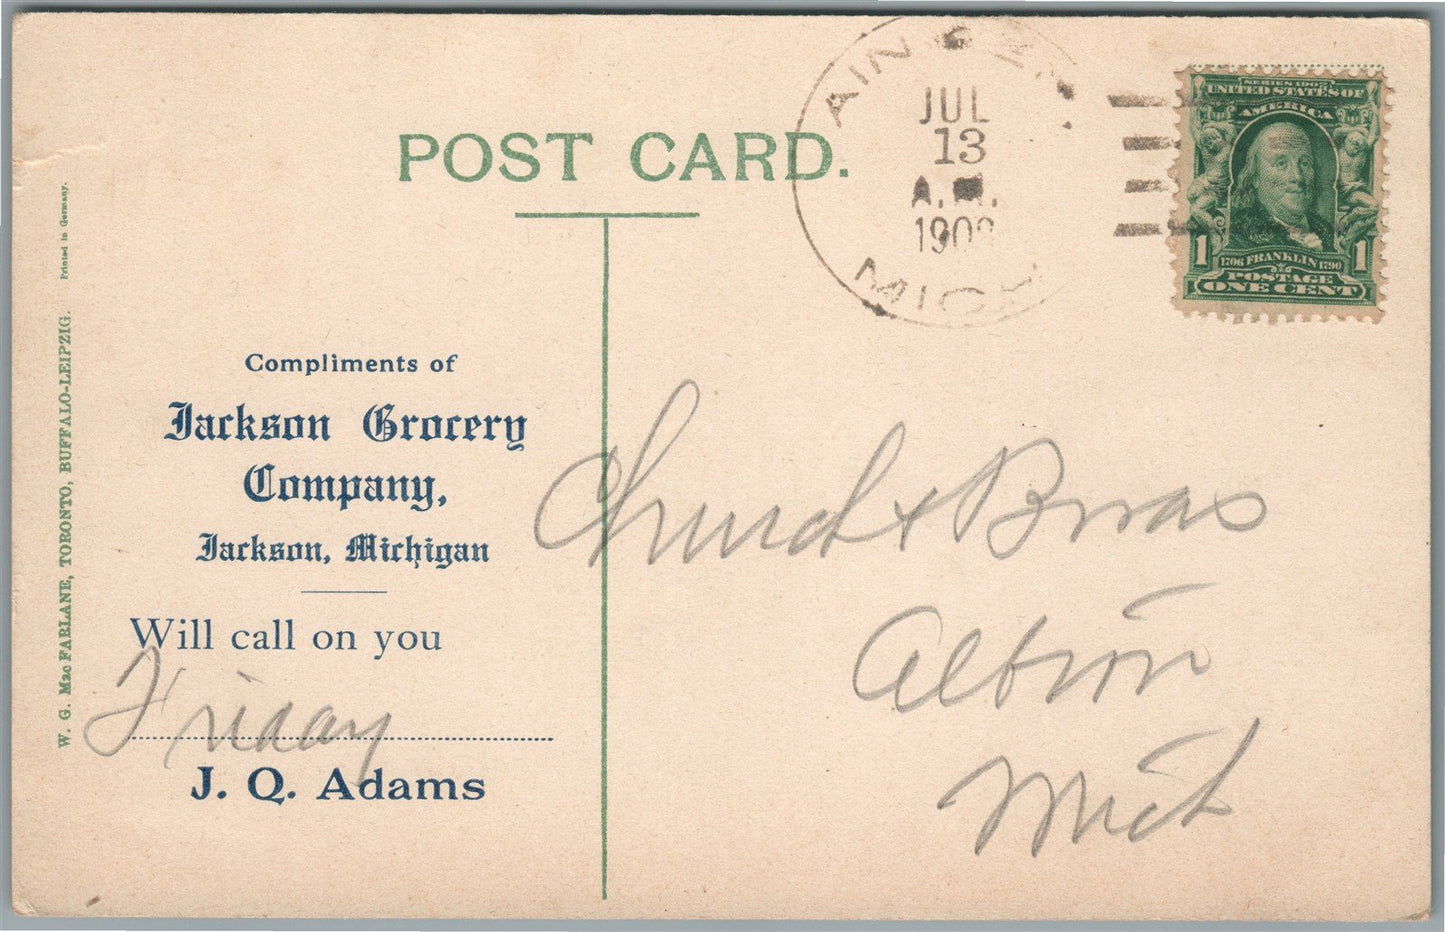 POST CARD.
JUL
13
A.M.
MICH
SERIES 1902
UNITED STATES OF
AMERICA
1706 FRANKLIN 1790
1 1
POSTAGE
ONE CENT
W. G. Mac FARLANE, TORONTO, BUFFALO-LEIPZIG. Printed in Germany.
Compliments of
Jackson Grocery
Company,
Jackson, Michigan
Will call on you
Friday
J. Q. Adams
Church &
Albion
Mich